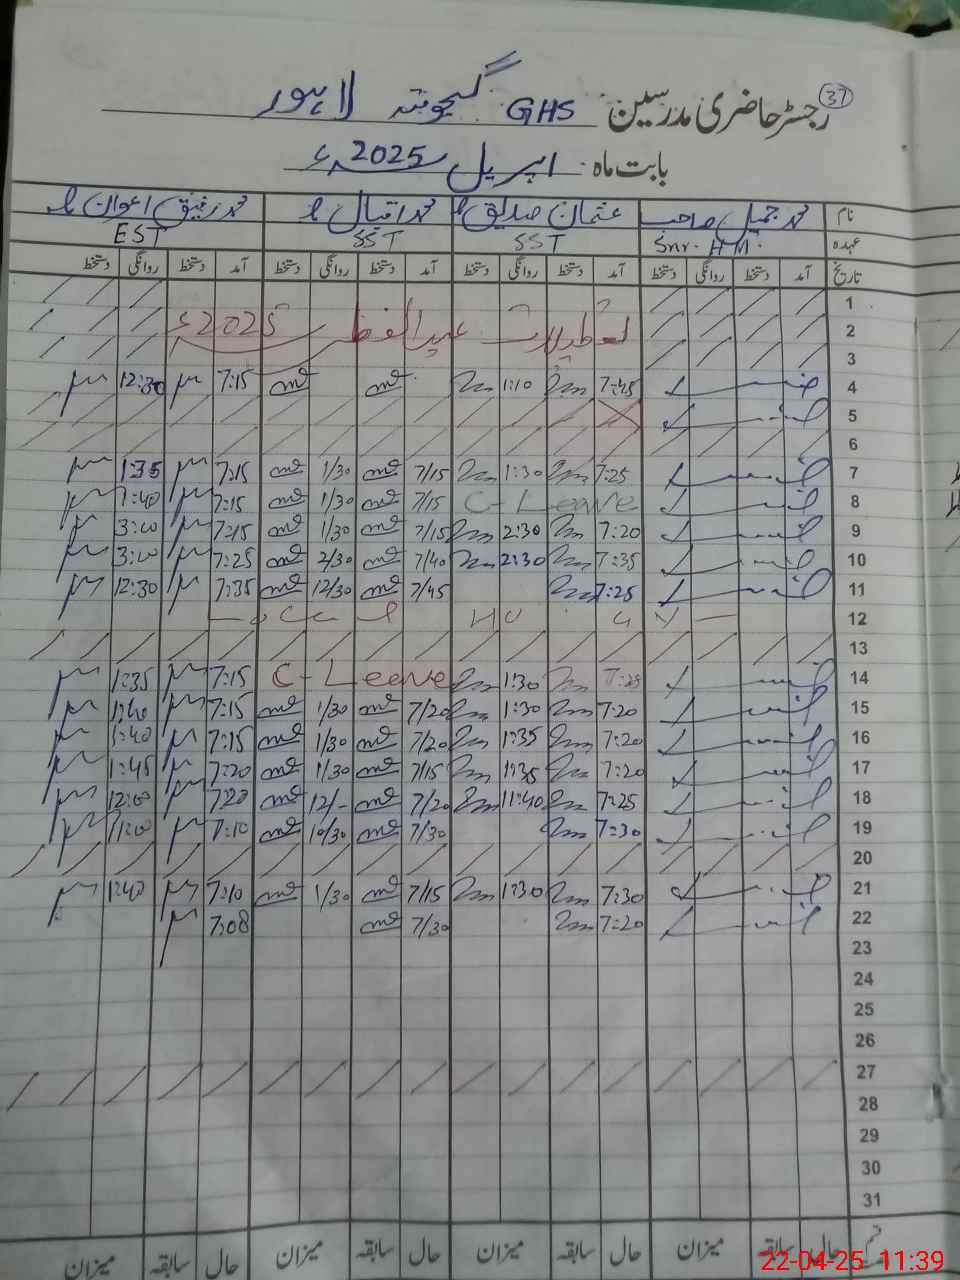 37
رجسٹر حاضری مدرسین GHS گجومتہ لاہور
بابت ماہ اپریل 2025ء
نام محمد جمیل صاحب عثمان صدیق محمد اقبال محمد رفیق اعوان
عہدہ Snr. H.M. SST SST EST
تاریخ آمد دستخط روانگی دستخط آمد دستخط روانگی دستخط آمد دستخط روانگی دستخط آمد دستخط روانگی دستخط
1
2 تعطیلات عیدالفطر 2025ء
3
4 7:45 1:10 7:15 12:30
5
6
7 7:25 1:30 7/15 1/30 7:15 1:35
8 C-Leave 7/15 1/30 7:15 1:40
9 7:20 2:30 7/15 1/30 7:15 3:00
10 7:35 2:30 7/40 2/30 7:25 3:00
11 7:25 7/45 12/30 7:35 12:30
12
13
14 7:25 1:30 C-Leave 7:15 1:35
15 7:20 1:30 7/20 1/30 7:15 1:40
16 7:20 1:35 7/20 1/30 7:15 1:40
17 7:20 1:35 7/15 1/30 7:20 1:45
18 7:25 11:40 7/20 12/- 7:20 12:00
19 7:30 7/30 10/30 7:10 11:00
20
21 7:30 1:30 7/15 1/30 7:10 1:40
22 7:20 7/30 7:08
23
24
25
26
27
28
29
30
31
حال سابقہ میزان حال سابقہ میزان حال سابقہ میزان حال سابقہ میزان
22-04-25 11:39